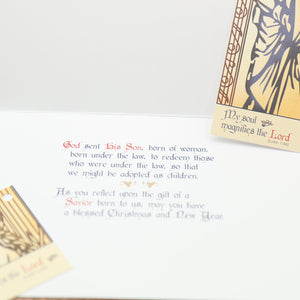 My soul
magnifies the Lord
God sent His Son, born of woman,
born under the law, to redeem those
who were under the law, so that
we might be adopted as children.
As you reflect upon the gift of a
Savior born to us, may you have
a blessed Christmas and New Year.
the Lord